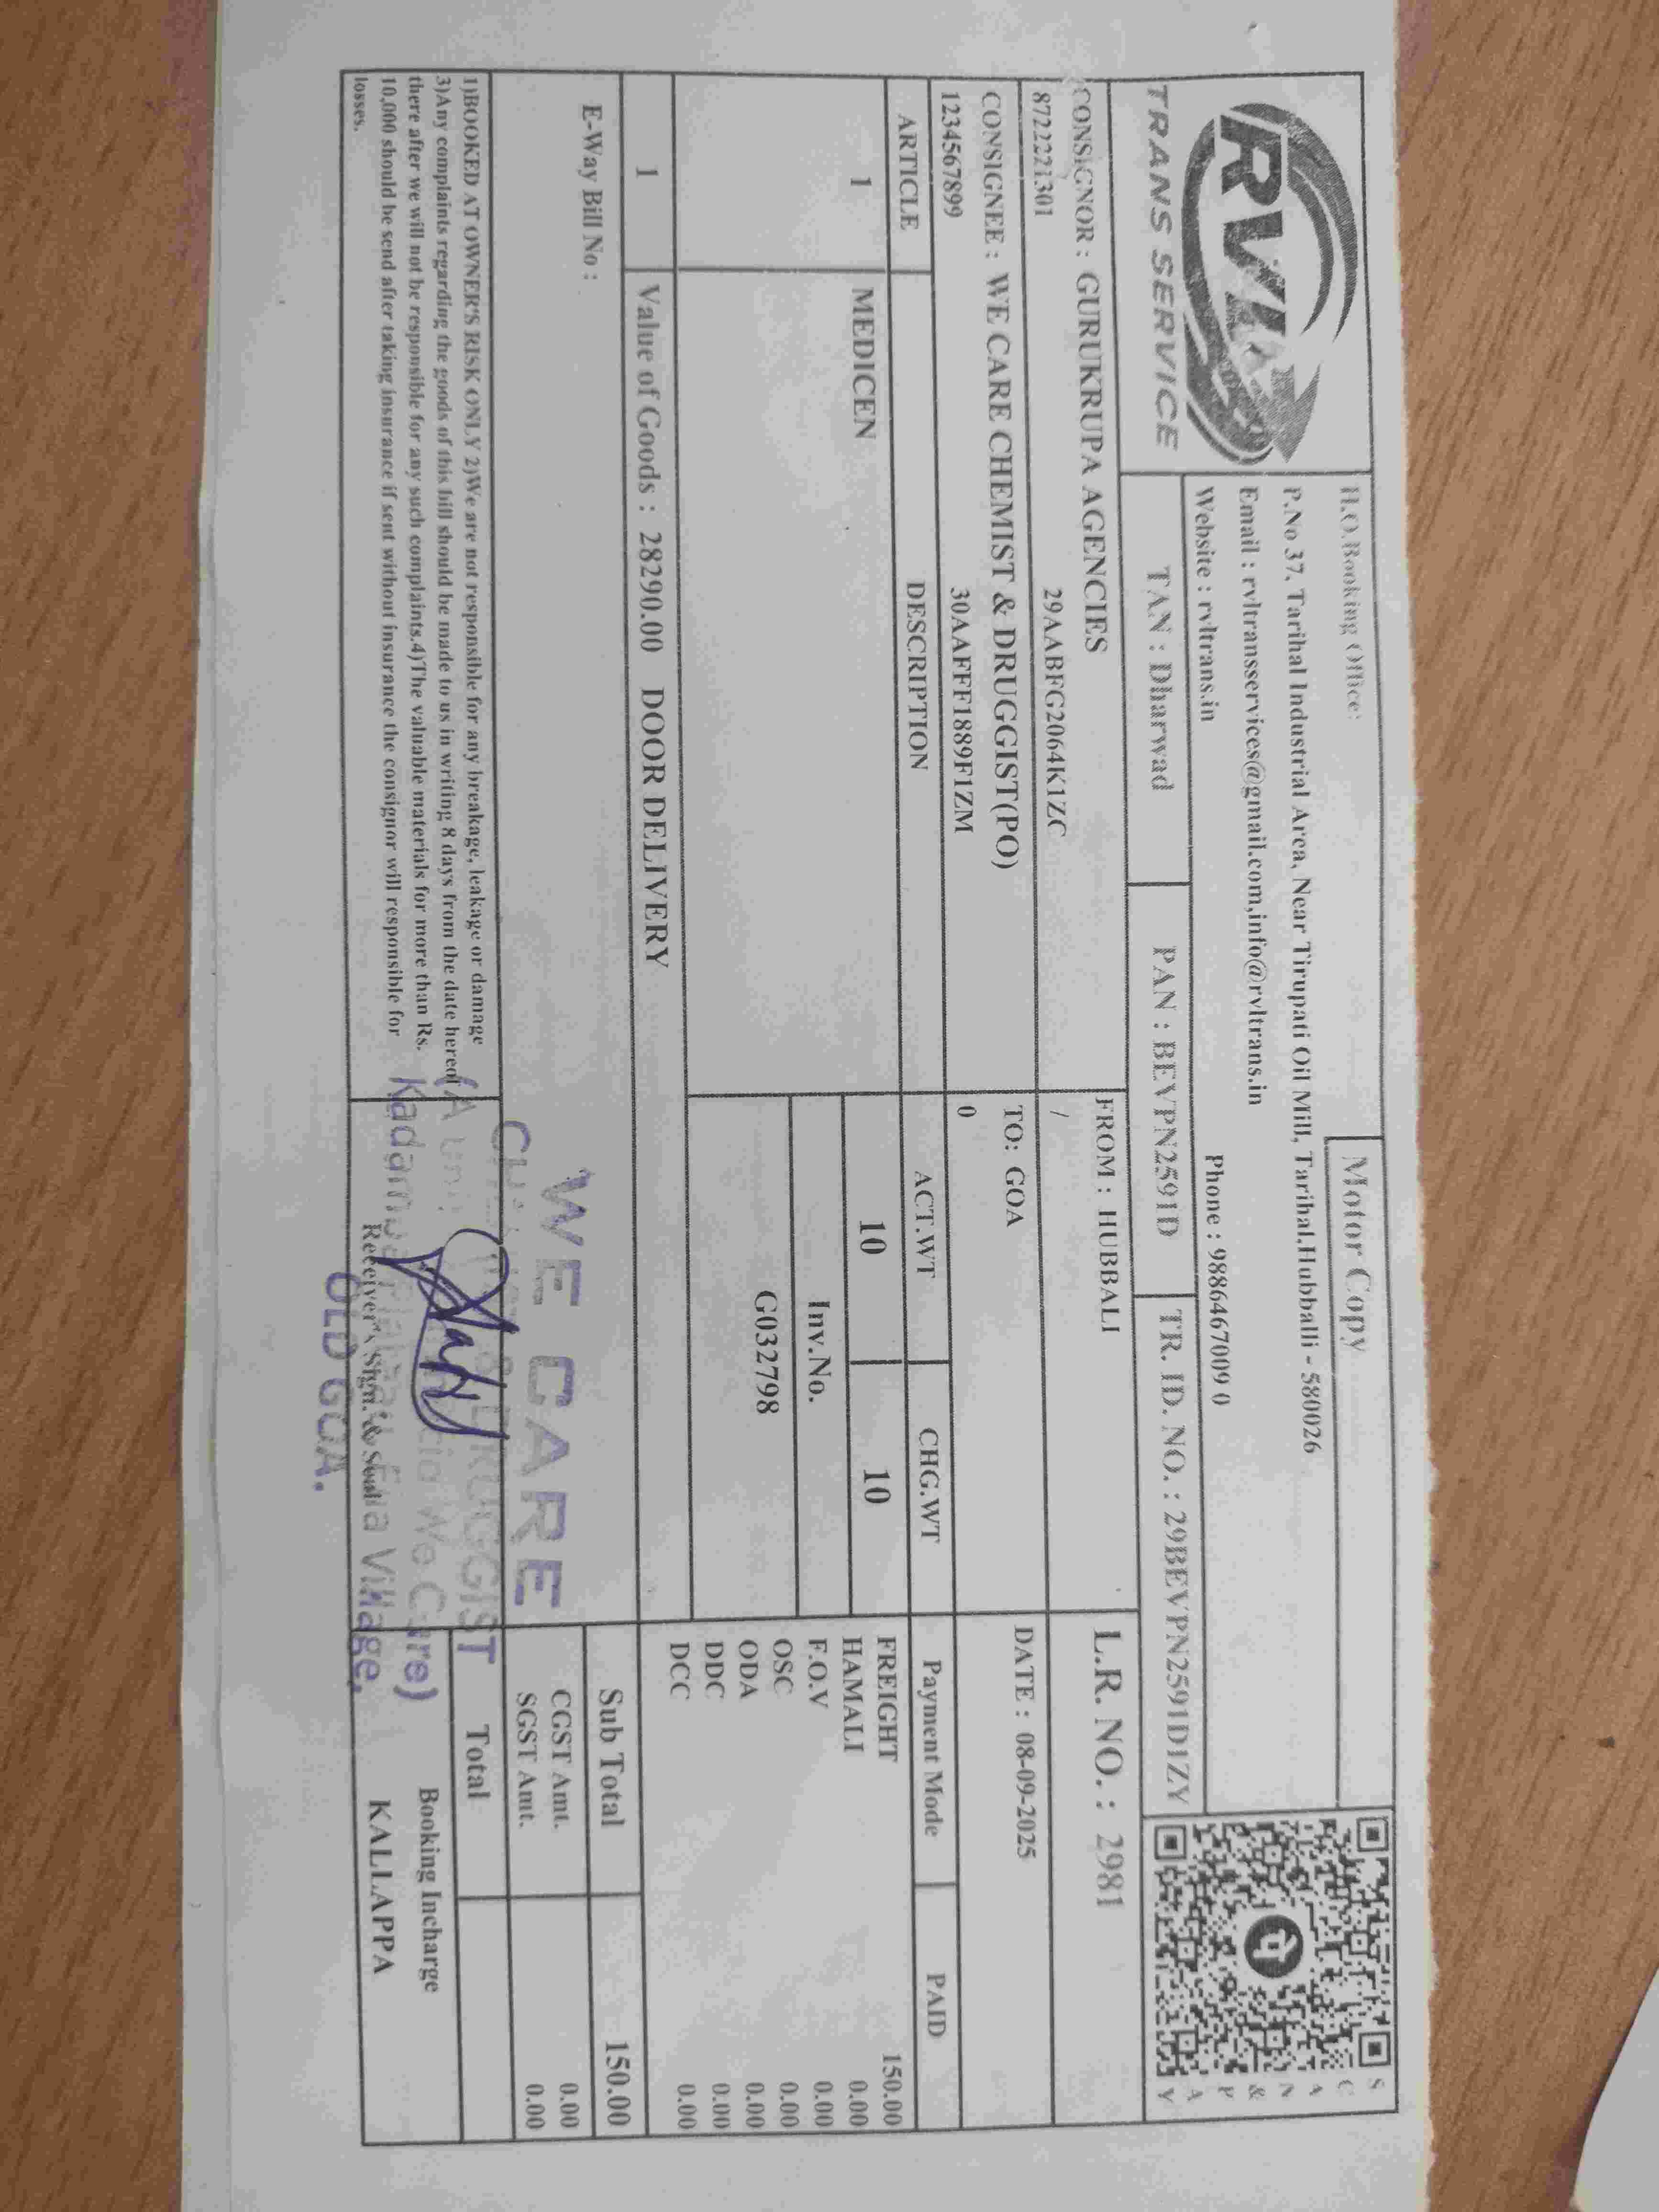 RVL
TRANS SERVICE
H.O.Booking Office:
Motor Copy
P.No 37, Tarihal Industrial Area, Near Tirupati Oil Mill, Tarihal,Hubballi - 580026
Email : rvltransservices@gmail.com,info@rvltrans.in
Website : rvltrans.in
Phone : 9886467009 0
SCAN & PAY
TAN : Dharwad
PAN : BEVPN2591D
TR. ID. NO. : 29BEVPN2591D1ZY
CONSIGNOR : GURUKRUPA AGENCIES
FROM : HUBBALI
L.R. NO. : 2981
8722221301
29AABFG2064K1ZC
/
CONSIGNEE : WE CARE CHEMIST & DRUGGIST(PO)
TO: GOA
DATE : 08-09-2025
1234567899
30AAFFF1889F1ZM
0
ARTICLE
DESCRIPTION
ACT.WT
CHG.WT
Payment Mode
PAID
1
MEDICEN
10
10
Inv.No.
G032798
FREIGHT 150.00
HAMALI 0.00
F.O.V 0.00
OSC 0.00
ODA 0.00
DDC 0.00
DCC 0.00
1
Value of Goods : 28290.00 DOOR DELIVERY
Sub Total 150.00
E-Way Bill No :
CGST Amt. 0.00
SGST Amt. 0.00
Total
1)BOOKED AT OWNER'S RISK ONLY 2)We are not responsible for any breakage, leakage or damage
3)Any complaints regarding the goods of this bill should be made to us in writing 8 days from the date hereof
there after we will not be responsible for any such complaints.4)The valuable materials for more than Rs.
10,000 should be send after taking insurance if sent without insurance the consignor will responsible for
losses.
WE CARE
DRUGGIST
We Care)
Village,
OLD GOA.
Receiver's Sign. & Seal
Booking Incharge
KALLAPPA